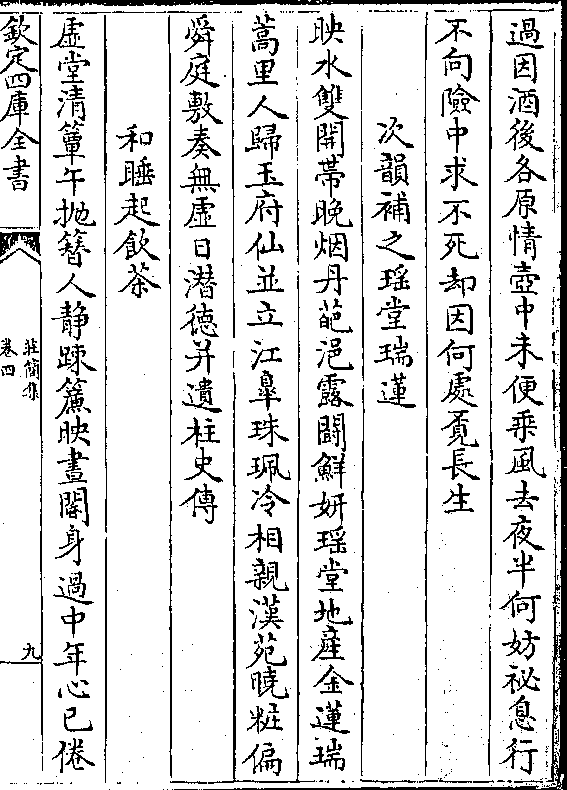 過因酒後各原情壺中未便乘風去夜半何妨祕息行
不向險中求不死却因何處覔長生
次韻補之瑶堂瑞蓮
映水雙開蔕晚烟丹葩浥露鬭鮮妍瑶堂地産金蓮瑞
蒿里人歸玉府仙並立江臯珠珮冷相親漢苑曉粧偏
舜庭敷奏無虛日潜徳并遺柱史傳
和睡起飲茶
虛堂清簟午抛簪人靜踈簾映晝閣身過中年心已倦
欽定四庫全書
莊簡集
卷四
九